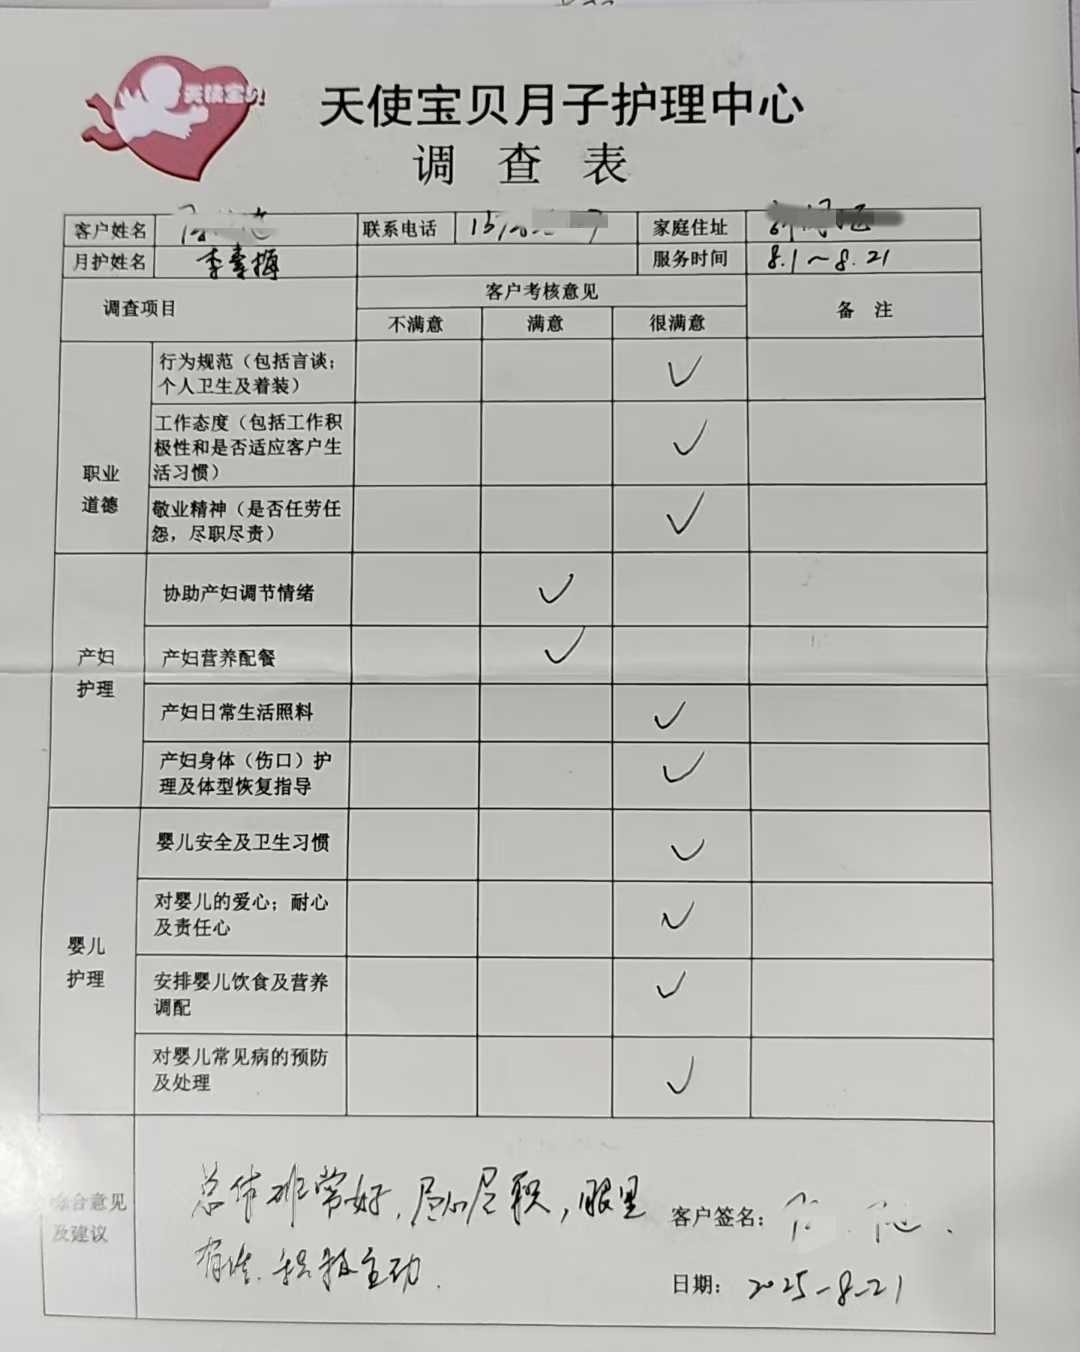 天使宝贝
天使宝贝月子护理中心
调查表
客户姓名 联系电话 家庭住址
月护姓名 李素梅 服务时间 8.1~8.21
调查项目 客户考核意见 备注
不满意 满意 很满意
职业
道德
行为规范（包括言谈；
个人卫生及着装） ✓
工作态度（包括工作积
极性和是否适应客户生
活习惯） ✓
敬业精神（是否任劳任
怨，尽职尽责） ✓
产妇
护理
协助产妇调节情绪 ✓
产妇营养配餐 ✓
产妇日常生活照料 ✓
产妇身体（伤口）护
理及体型恢复指导 ✓
婴儿
护理
婴儿安全及卫生习惯 ✓
对婴儿的爱心；耐心
及责任心 ✓
安排婴儿饮食及营养
调配 ✓
对婴儿常见病的预防
及处理 ✓
综合意见
及建议
总体非常好，尽心尽职，眼里
有活，积极主动.
客户签名：
日期： 2025-8-21